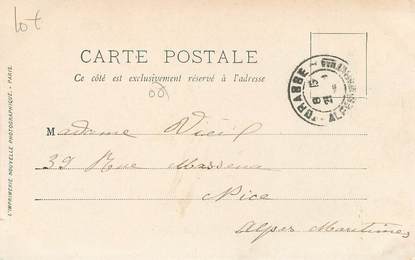 lot
CARTE POSTALE
Ce côté est exclusivement réservé à l'adresse
Madame Vieil
39 Rue Massena
Nice
Alpes Maritimes
L'IMPRIMERIE NOUVELLE PHOTOGRAPHIQUE - PARIS.